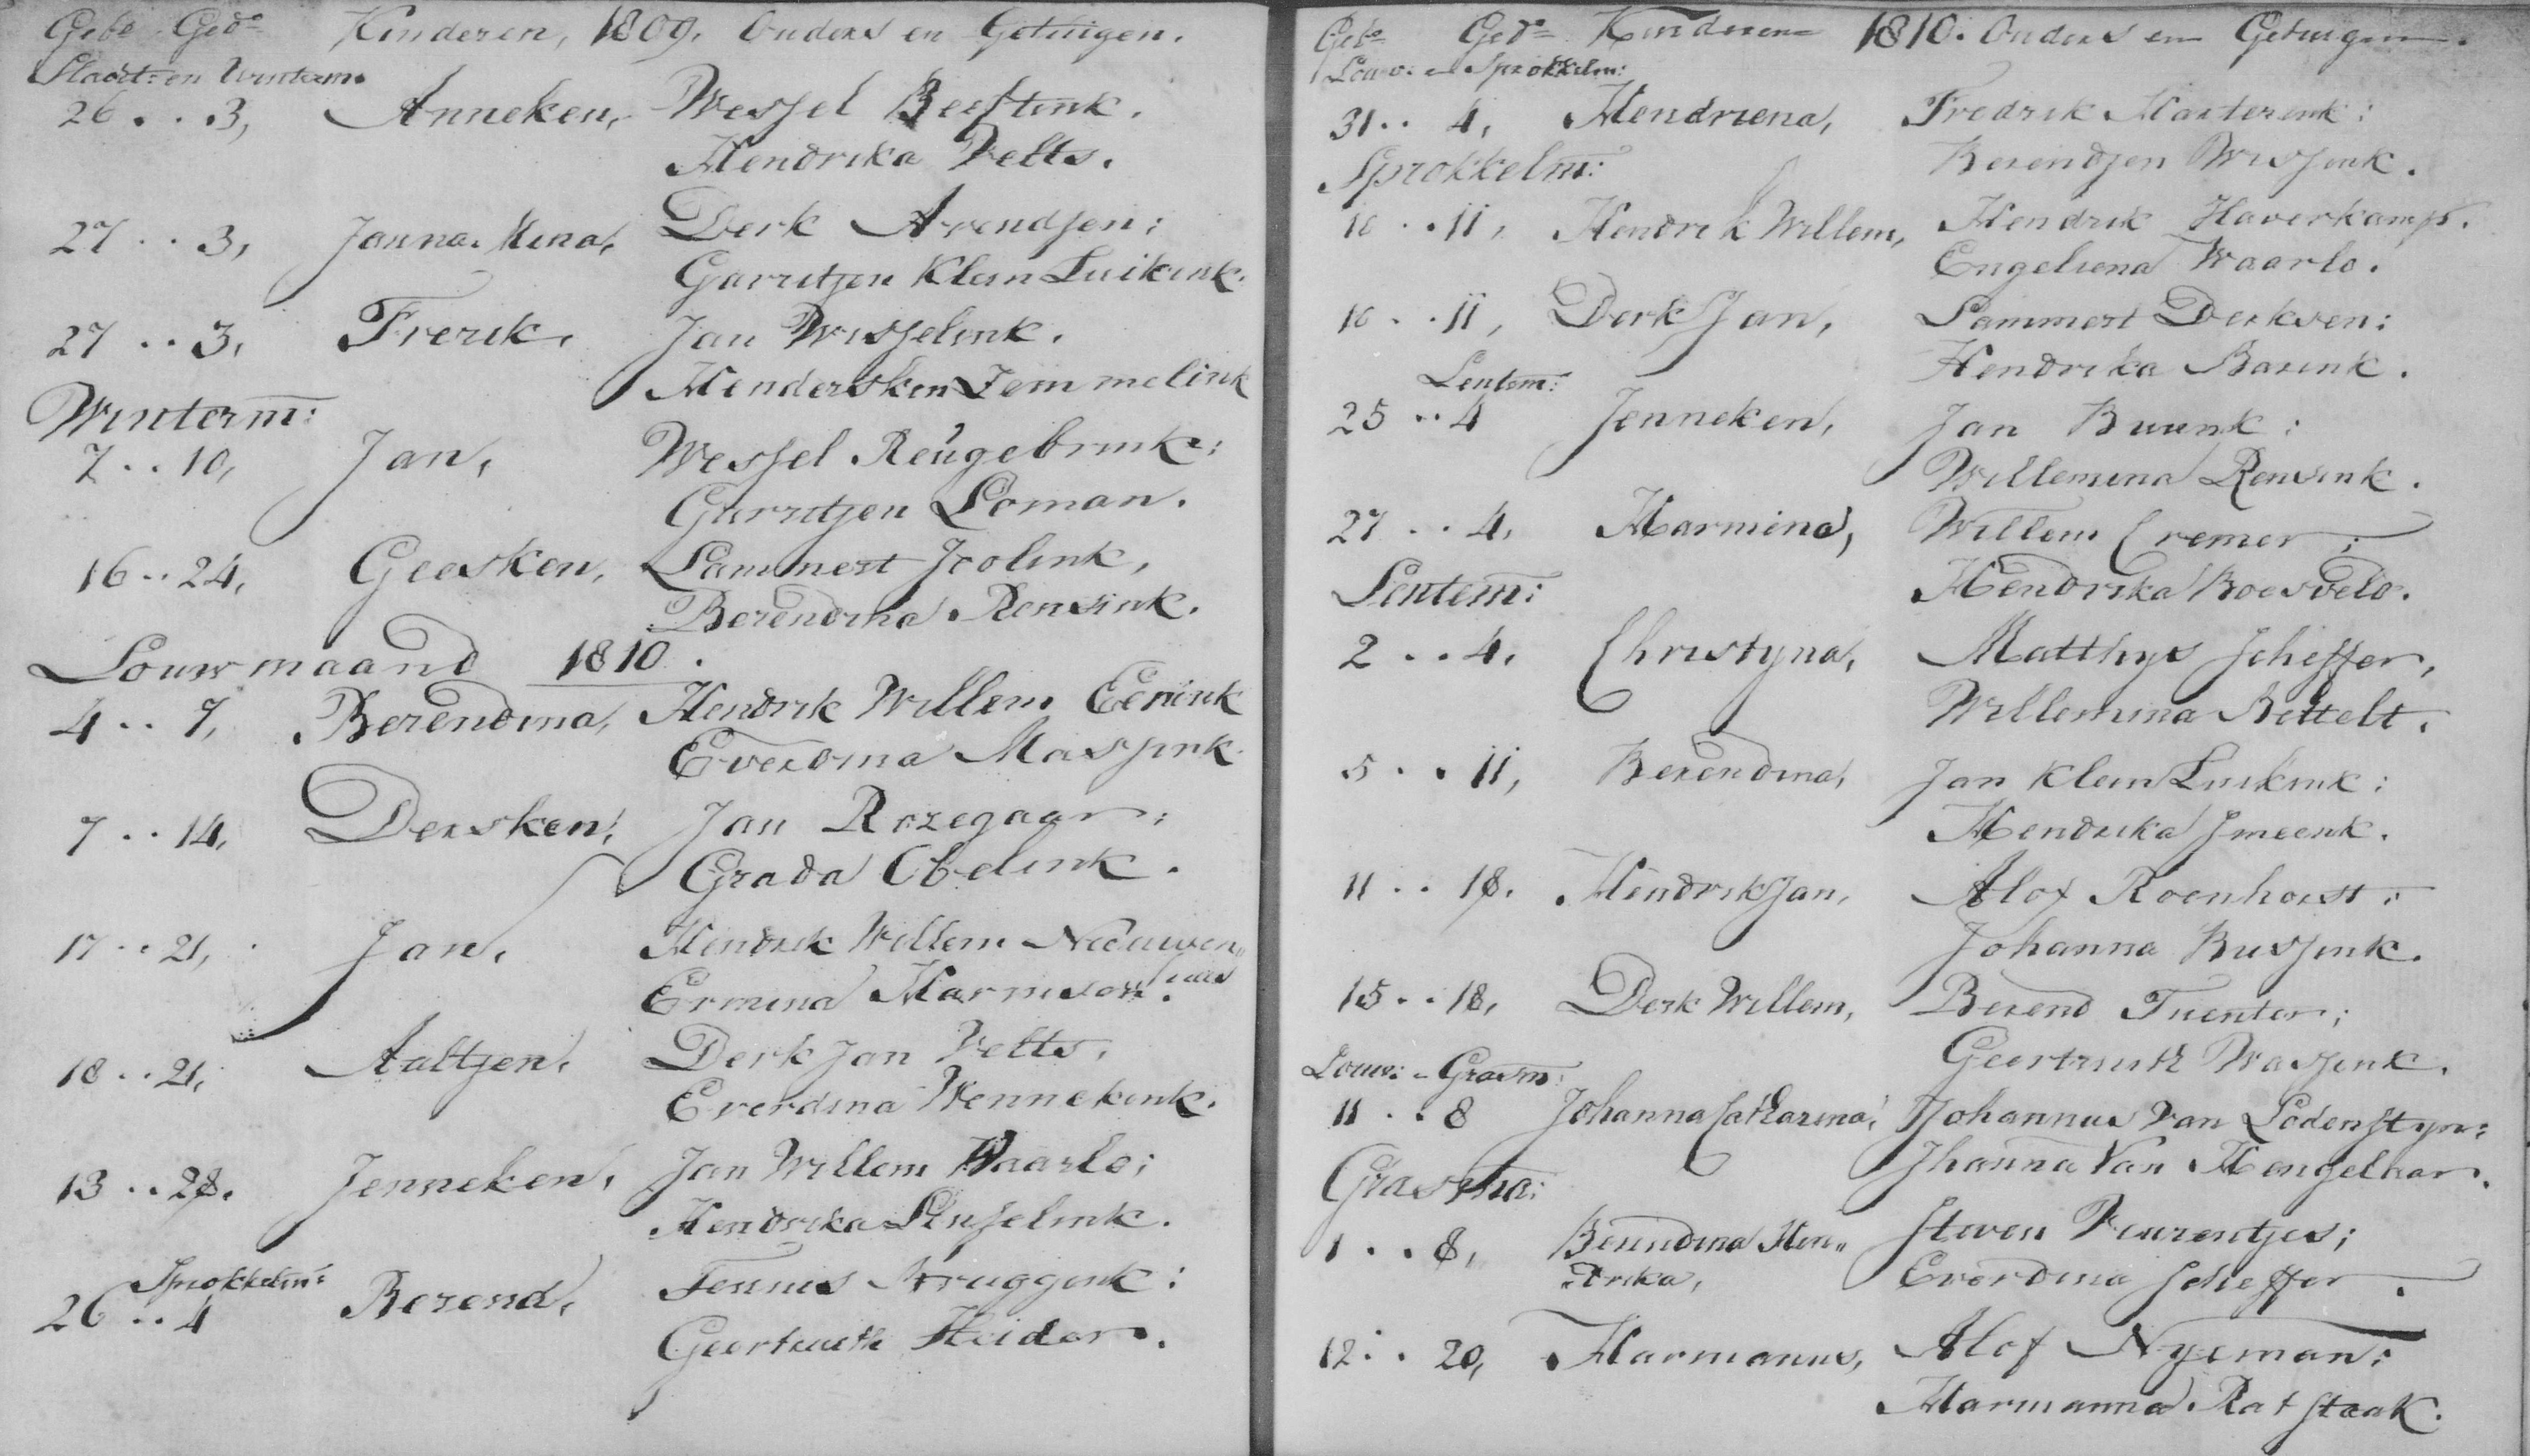 Gebo Gedo Kinderen, 1809. Ouders en Getuigen.
Slacht: en Winterm.
26 . . 3, Anneken, Wessel Beestink.
Hendrika Velts.
27 . . 3, Janna Mina, Derk Arendsen;
Garritjen Klein Luikink.
27 . . 3, Frerik, Jan Wisselink.
Hendersken Temmelink
Winterm:
7 . . 10, Jan, Wessel Reugebrink:
Garritjen Loman.
16 . . 24, Geesken, Lammert Joolink,
Berendina Rensink.
Louwmaand 1810.
4 . . 7, Berendina, Hendrik Willem Eenink
Everdina Massink
7 . . 14, Dersken, Jan Rozegaar;
Grada Obelink.
17 . . 21, Jan, Hendrik Willem Nieuwen„
huis
Ermina Harmsen.
18 . . 21, Aaltjen, Derk Jan Velts,
Everdina Wennekink.
13 . . 28. Jenneken, Jan Willem Waarlo;
Hendrika Linselink.
Sprokkelm:
26 . . 4 Berend, Teunis Bruggink:
Geertruith Heider.
Gebo Gedo Kinderen 1810. Ouders en Getuigen.
Louw: en Sprokkelm:
31 . . 4, Hendriena, Fredrik Marterink:
Berendjen Wissink.
Sprokkelm:
10 . . 11, Hendrik Willem, Hendrik Haverkamp.
Engeliena Waarlo.
10 . . 11, Derk Jan, Lammert Derksen:
Hendrika Barink.
Lentem:
25 . . 4 Jenneken, Jan Buunk:
Willemina Rensink.
27 . . 4, Harmina, Willem Cremer;
Hendrika Boesveld.
Lentem:
2 . . 4, Christyna, Matthys Scheffer,
Willemina Bettelt.
5 . . 11, Berendina, Jan Klein Luikink:
Hendrika Smeenk.
11 . . 18. Hendrik Jan, Alof Roenhorst:
Johanna Bussink.
15 . . 18, Derk Willem, Berend Tuenter;
Geertruith Wassink.
Louw: - Grasm:
11 . . 8 Johanna Catharina, Johannus Van Lodenstyn:
Jhanna Van Hengelaar.
Grasma:
1 . . 8, Berindina Hen„ Steven Veurentjes;
drika, Everdina Scheffer.
12 . . 20, Harmanus, Alof Nyeman:
Harmanna Ratstaak.